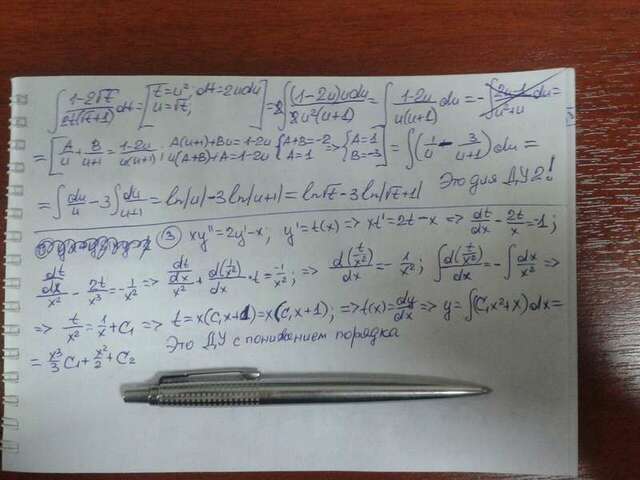 ∫ (1-2√t)/(2t(√t+1)) dt = [t=u²; dt=2udu; u=√t;] = 2∫ (1-2u)udu/(2u²(u+1)) = ∫ (1-2u)/(u(u+1)) du = -∫ (2u-1)/(u²+u) du =
= [A/u + B/(u+1) = (1-2u)/(u(u+1)); A(u+1)+Bu=1-2u; u(A+B)+A=1-2u {A+B=-2, A=1 => {A=1, B=-3] = ∫(1/u - 3/(u+1))du =
= ∫ du/u - 3∫ du/(u+1) = ln|u|-3ln|u+1| = ln√t-3ln|√t+1| Это для ДУ2!
③ xy''=2y'-x; y'=t(x) => xt'=2t-x => dt/dx - 2t/x = -1;
(dt/dx)/x² - 2t/x³ = -1/x² => (dt/dx)/x² + d(1/x²)/dx · t = -1/x²; => d(t/x²)/dx = -1/x²; ∫ d(t/x²)/dx = -∫ dx/x² =>
=> t/x² = 1/x + C₁ => t = x(C₁x+1) = x(C₁x+1); => t(x) = dy/dx => y = ∫(C₁x²+x)dx =
= x³/3 C₁ + x²/2 + C₂ Это ДУ с понижением порядка